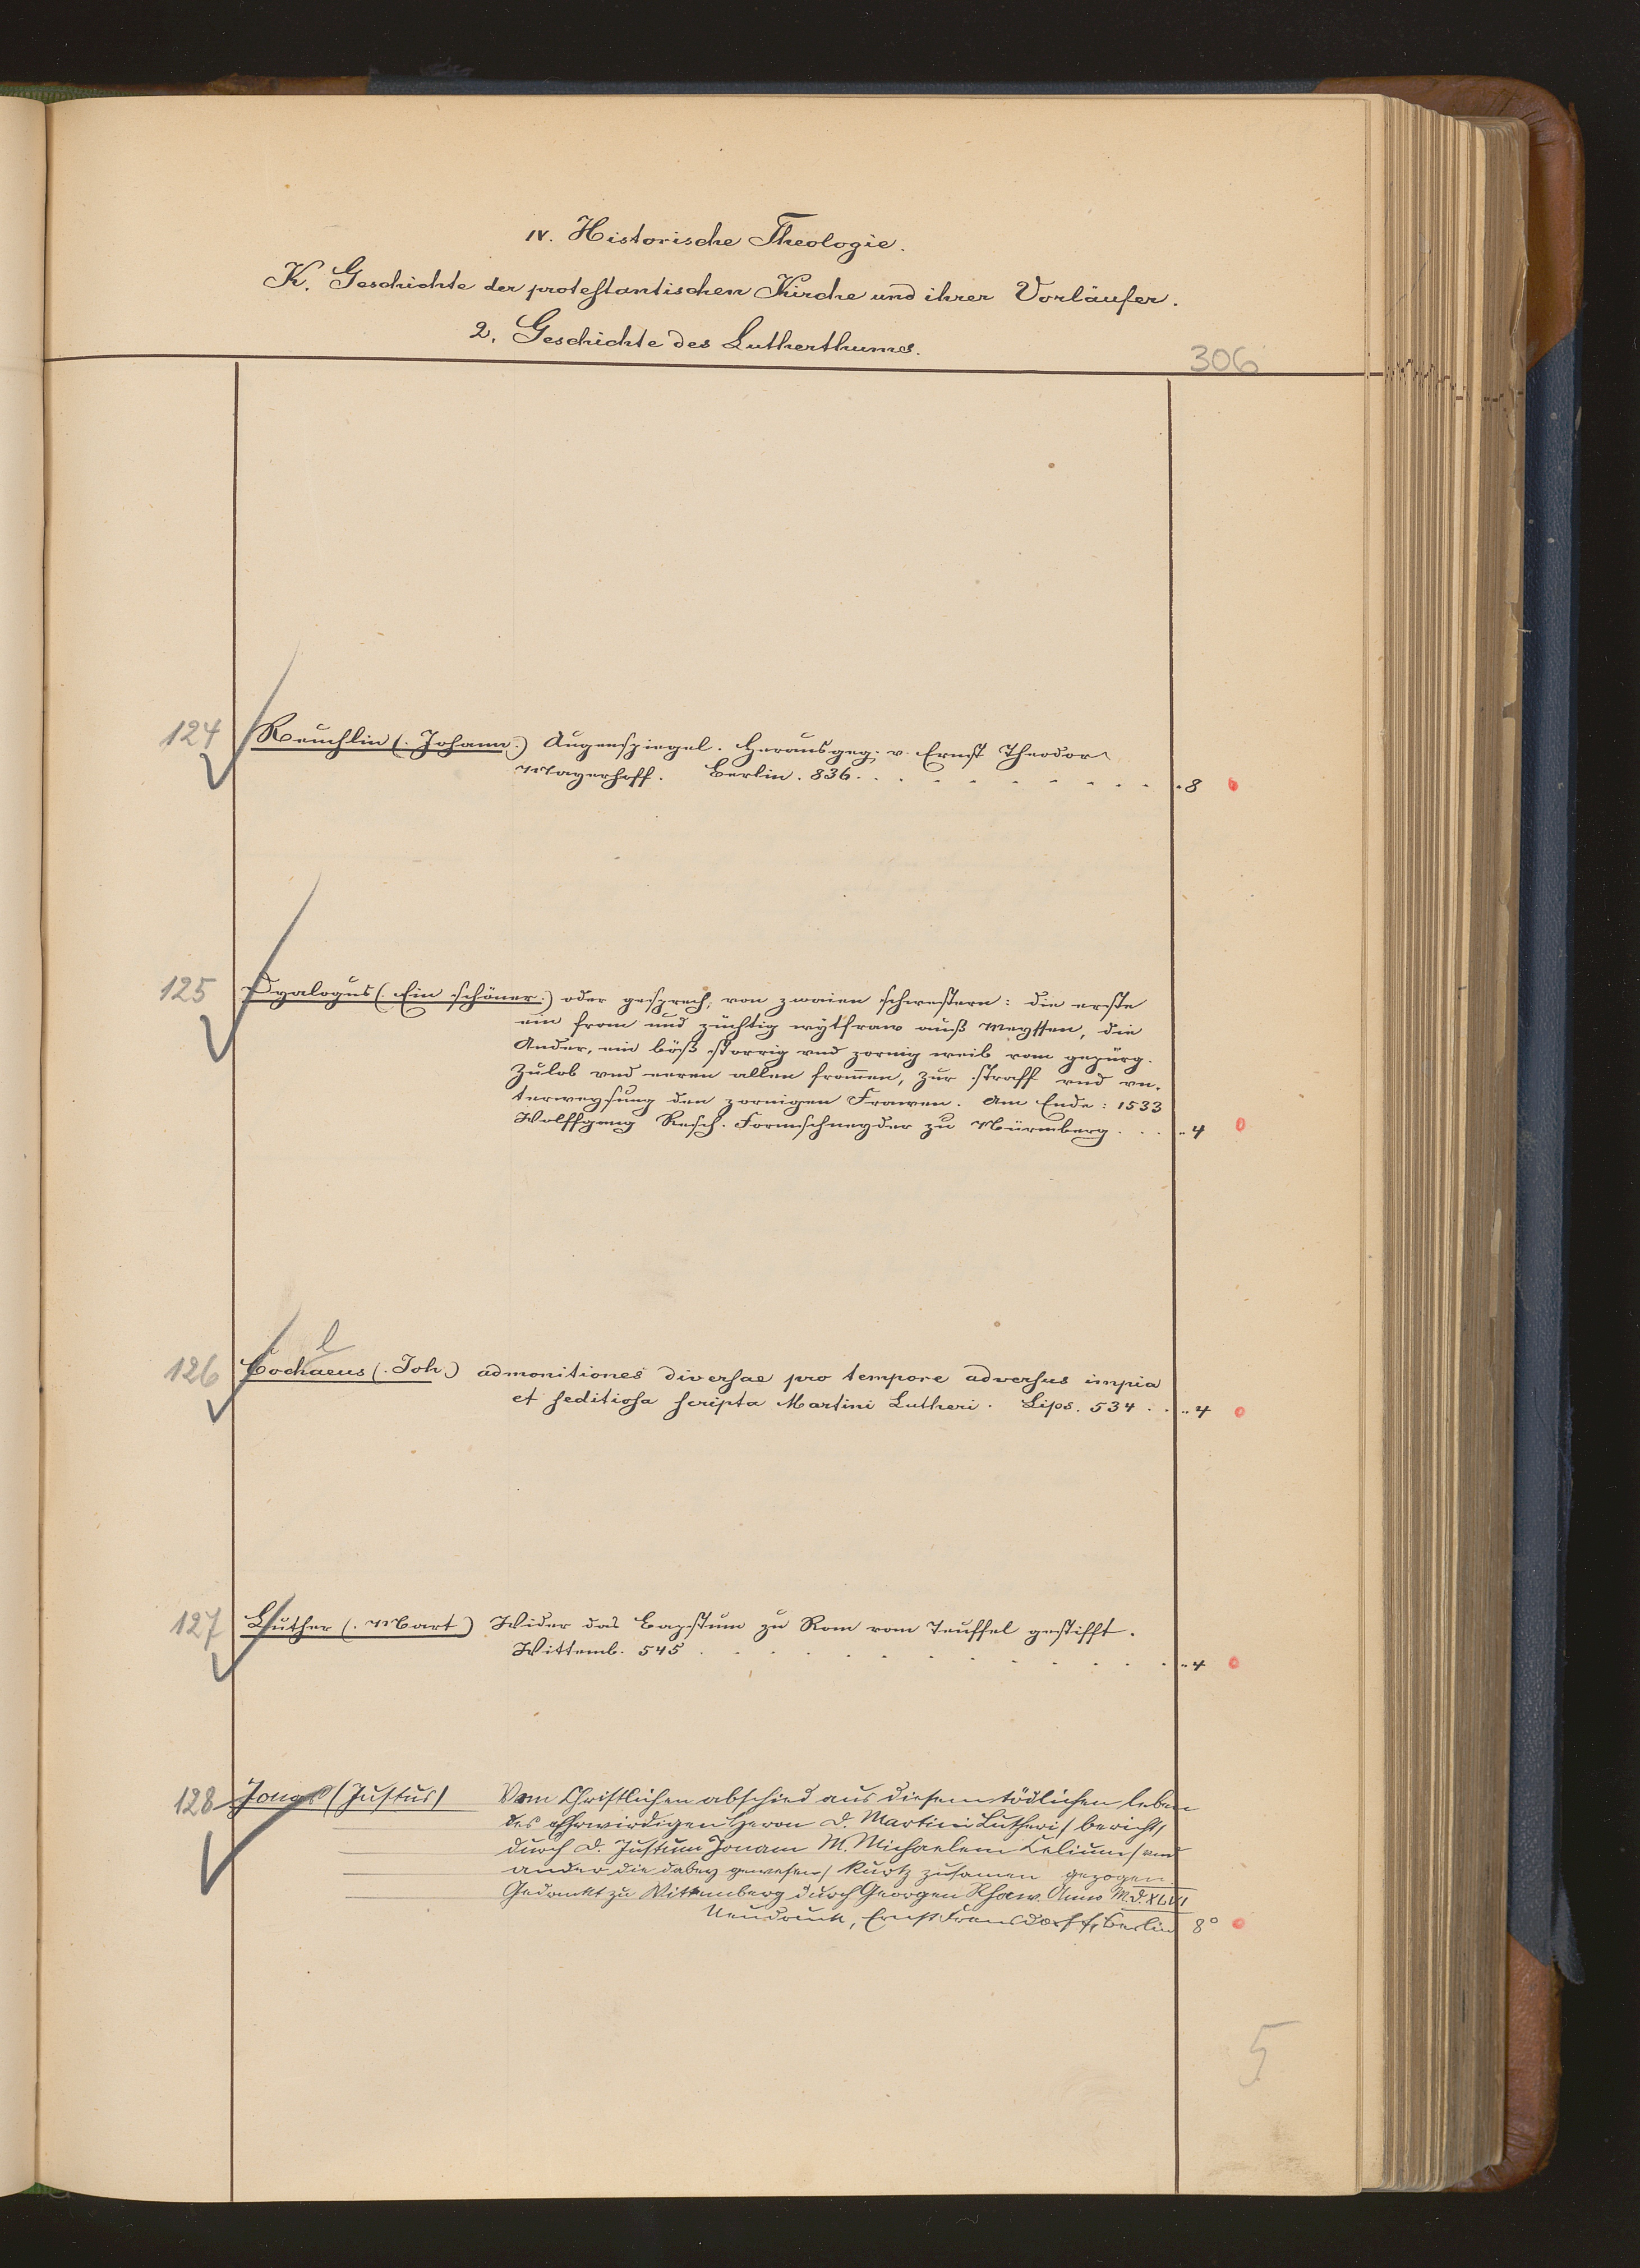 IV. Historische Theologie.
K. Geschichte der protestantischen Kirche und ihrer Vorläufer.
2. Geschichte des Lutherthumes.
306
124 Reuchlin (. Johann.) Augenspiegel. Herausgeg. v. Ernst Theodor
Mayerhoff. Berlin. 836. . . . . . . . . . . 8
125 Dyalogus (. Ein schöner.) oder gesprech, von zwaien schwestern: die erste
ein from und züchtig wytfraw auß Meyssen, die
Ander, ein böß storrig vnd zornig weib vom gepürg.
Zulob vnd eeren allen frommen, zur straff vnd vn-
terweysung den zornigen Frawen. Am Ende: 1533
Wolffgang Resch. Formschneyder zu Nürmberg . . . „ 4
l
126 Cochaeus (. Joh.) admonitiones diversae pro tempore adversus impia
et seditiosa scripta Martini Lutheri. Lips. 534 . . „ 4
127 Luther (. Mart) Wider das Bapstum zu Rom vom Teuffel gestifft.
Wittemb. 545 . . . . . . . . . . . „ 4
128 Jonas (Justus) Vom Christlichen abschied aus diesem tödlichen leben
des Ehrwirdigen Herrn D. Martini Lutheri / bericht /
durch D. Justum Jonam M. Michaelem Celium / vnd
ander die dabey gewesen / kurtz zusamen gezogen
Gedruckt zu Wittemberg durch Georgen Rhaw. Anno M.D.XLVI
Neudruck, Ernst Frensdorff, Berlin 8°
5